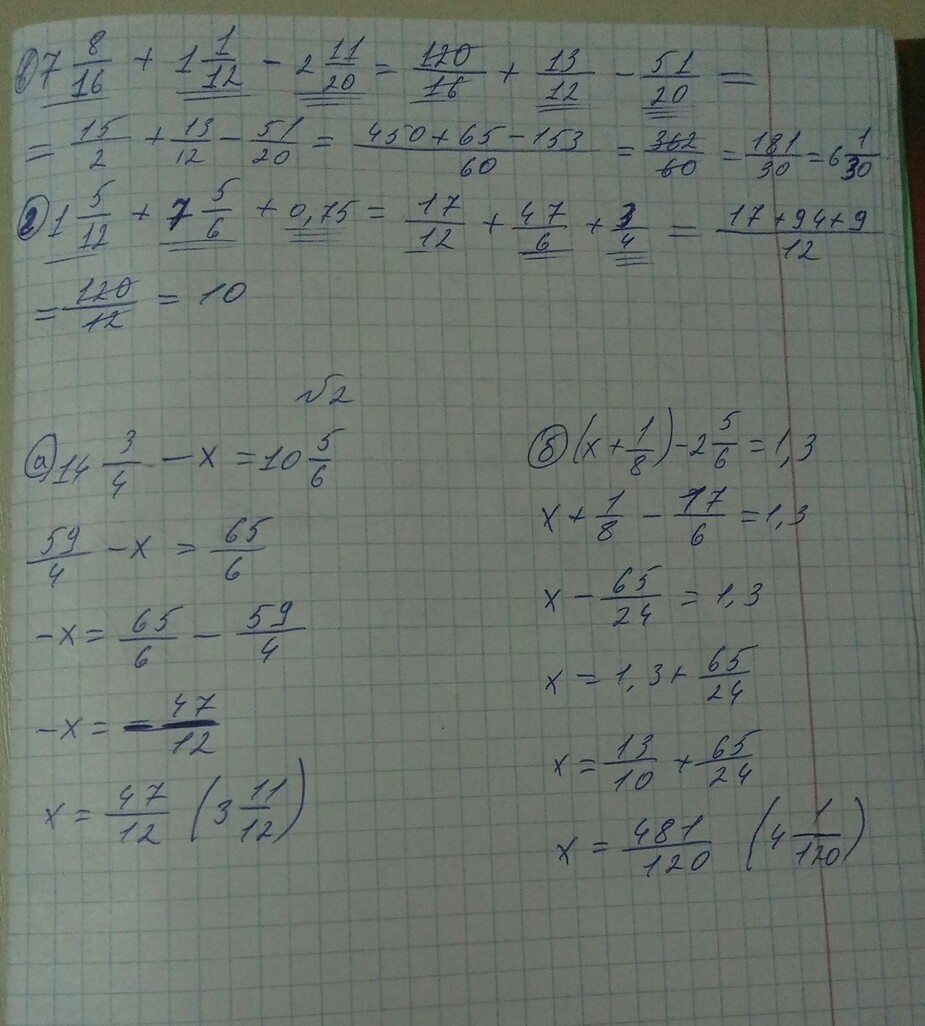 в) 7 8/16 + 1 1/12 - 2 11/20 = 120/16 + 13/12 - 51/20 =
= 15/2 + 13/12 - 51/20 = (450 + 65 - 153)/60 = 362/60 = 181/30 = 6 1/30
г) 1 5/12 + 7 5/6 + 0,75 = 17/12 + 47/6 + 3/4 = (17 + 94 + 9)/12
= 120/12 = 10
√2
а) 14 3/4 - x = 10 5/6
59/4 - x = 65/6
-x = 65/6 - 59/4
-x = - 47/12
x = 47/12 (3 11/12)
б) (x + 1/8) - 2 5/6 = 1,3
x + 1/8 - 17/6 = 1,3
x - 65/24 = 1,3
x = 1,3 + 65/24
x = 13/10 + 65/24
x = 481/120 (4 1/120)